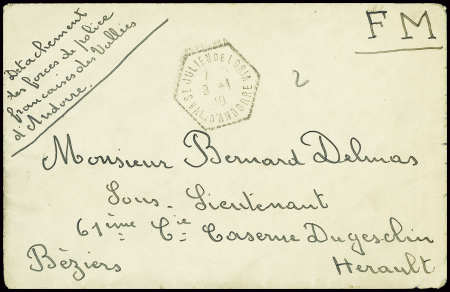 Détachement
des forces de police
françaises des Vallées
d'Andorre.
F M
ST JULIEN DE LORIA
7
3 -1
40
VAL D'ANDORRE
2
Monsieur Bernard Delmas
Sous-Lieutenant
61ème Cie Caserne Dugesclin
Béziers Herault